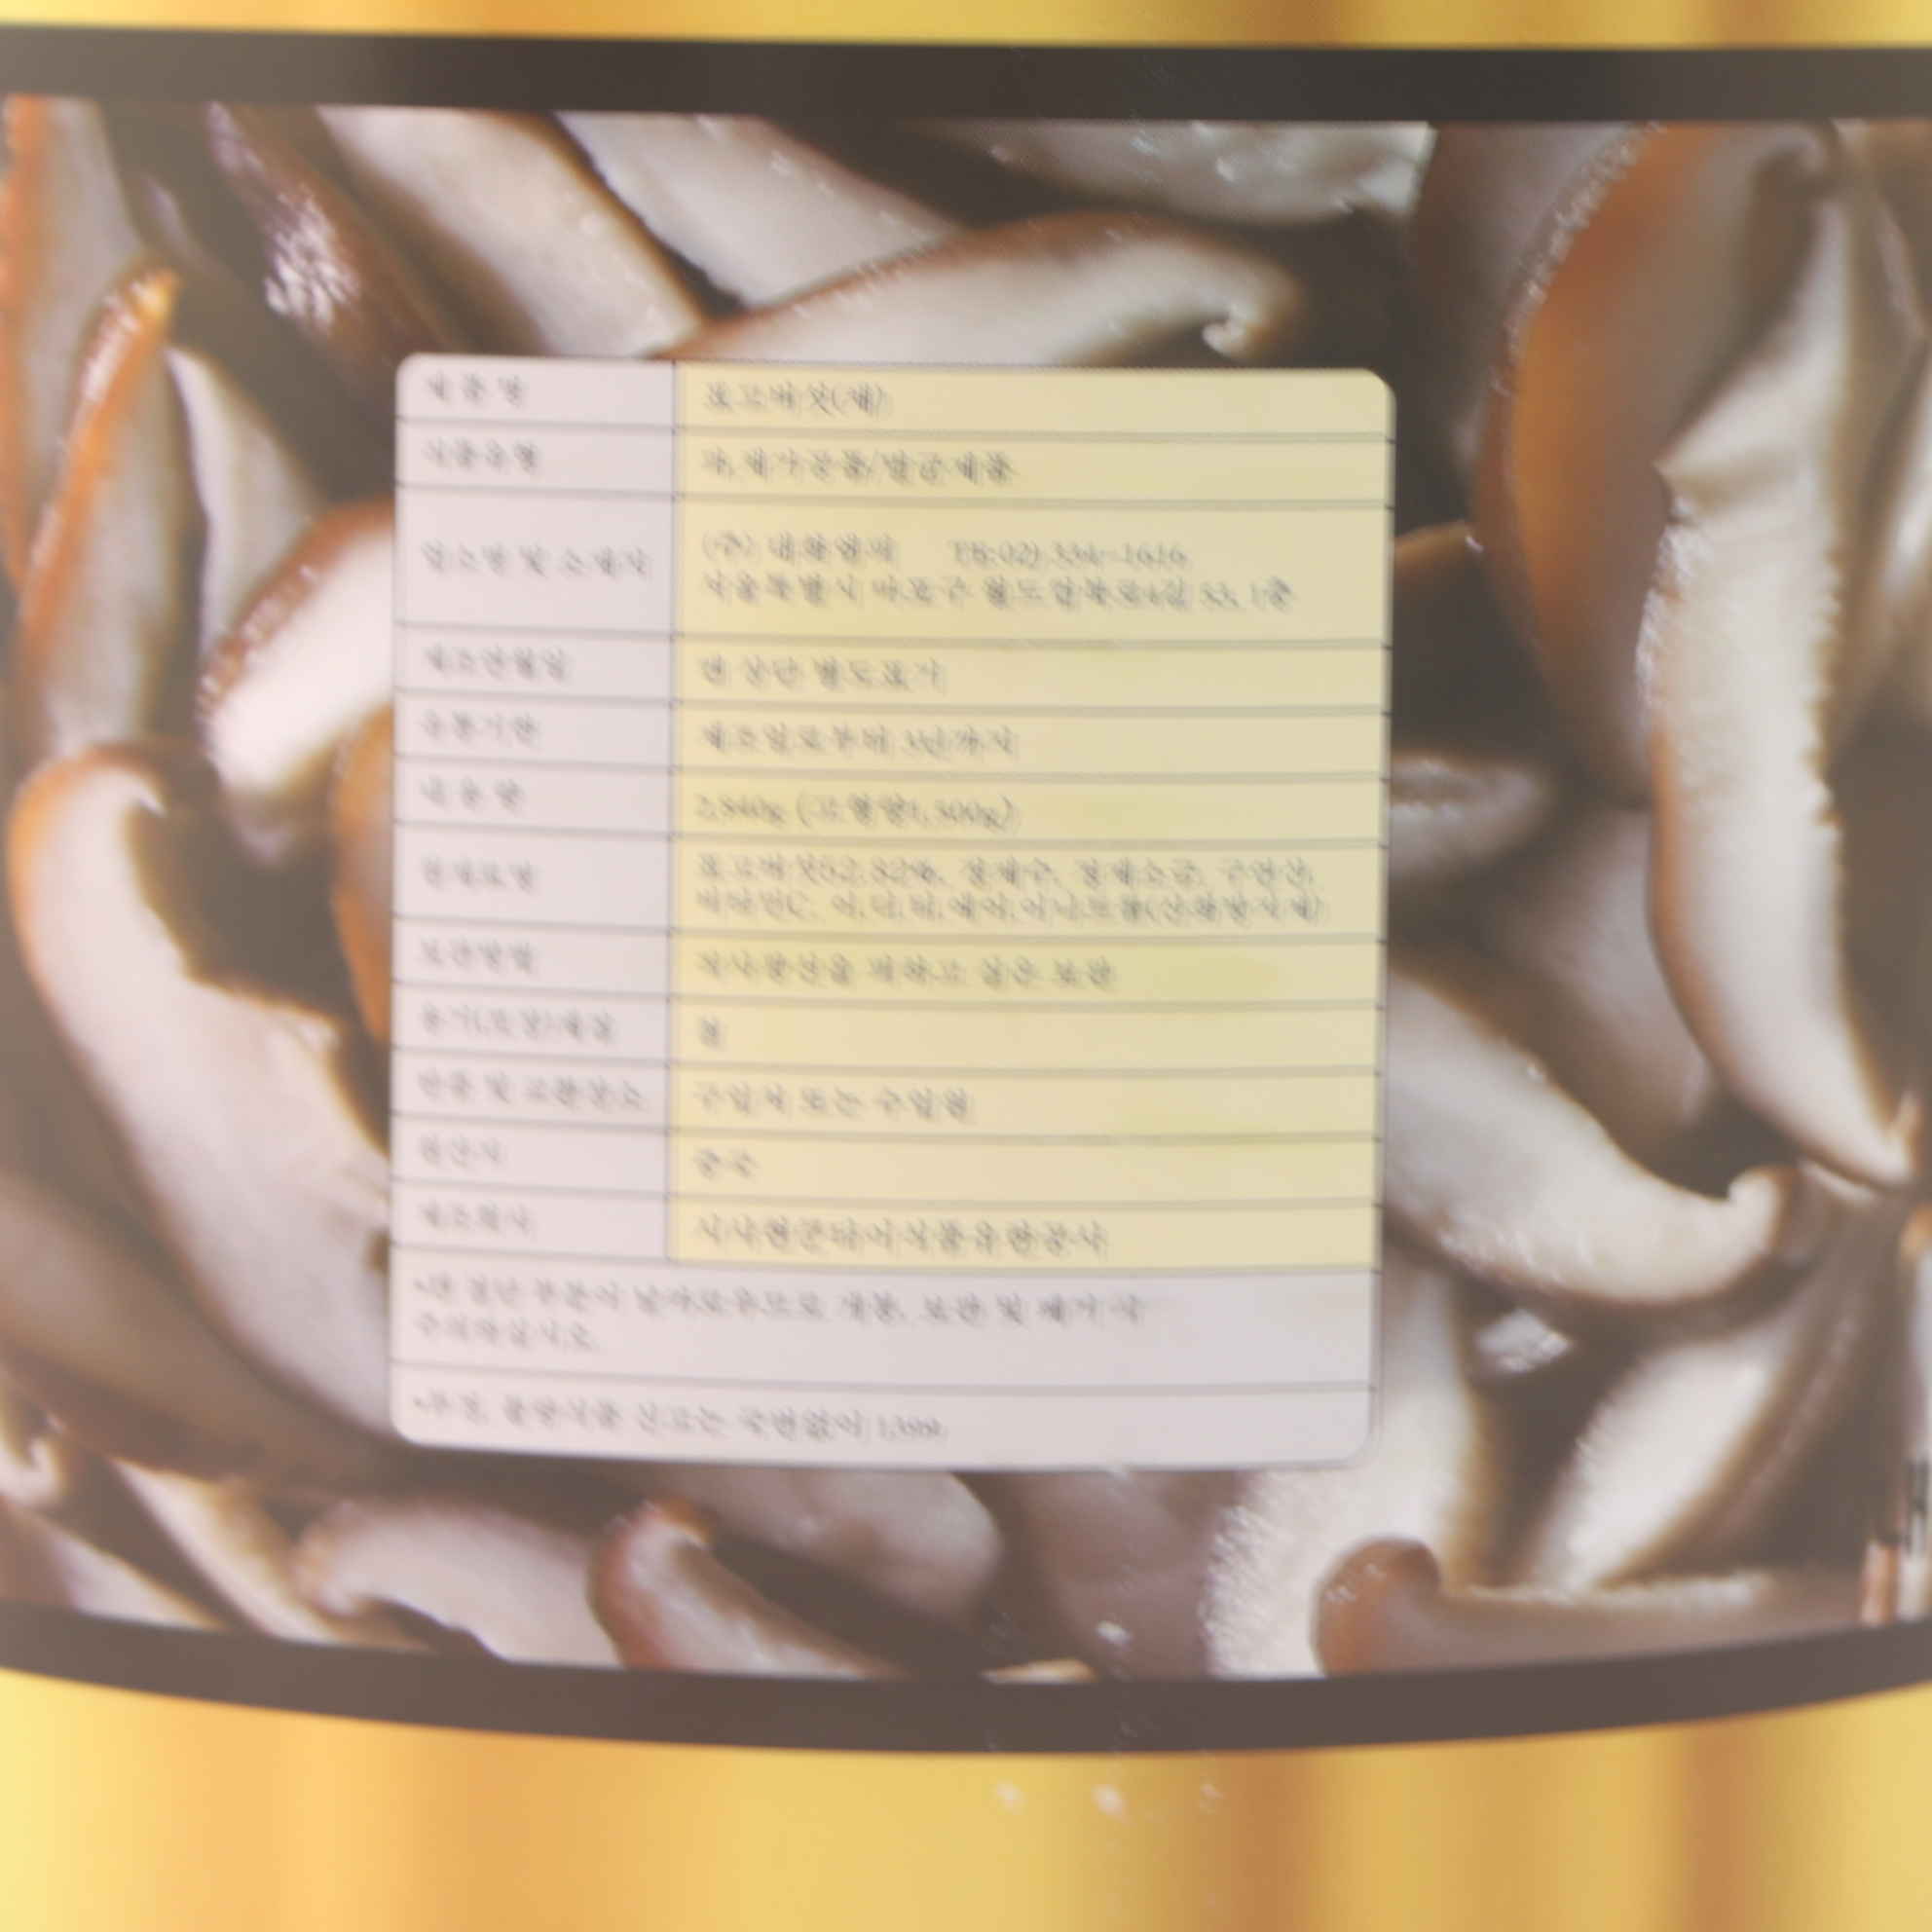 제 품 명 표고버섯(채)
식품유형 과.채가공품/멸균제품
업소명 및 소재지
(주) 02) 334-1616
서울특별시 마포구 월드컵북로4길 1층
제조연월일 캔 상단 별도표기
유통기한 제조일로부터 3년까지
내 용 량 2,840g (고형량1,500g)
원재료명 표고버섯52.82%, 정제수, 정제소금, 구연산,
비타민C, 이.디.티.에이.이나트륨(산화방지제)
보관방법 직사광선을 피하고 실온 보관
용기(포장)재질 캔
반품 및 교환장소 구입처 또는 수입원
원산지 중국
제조회사
•캔 절단 부분이 날카로우므로 개봉, 보관 및 폐기 시
주의하십시오.
•부정, 불량식품 신고는 국번없이 1399